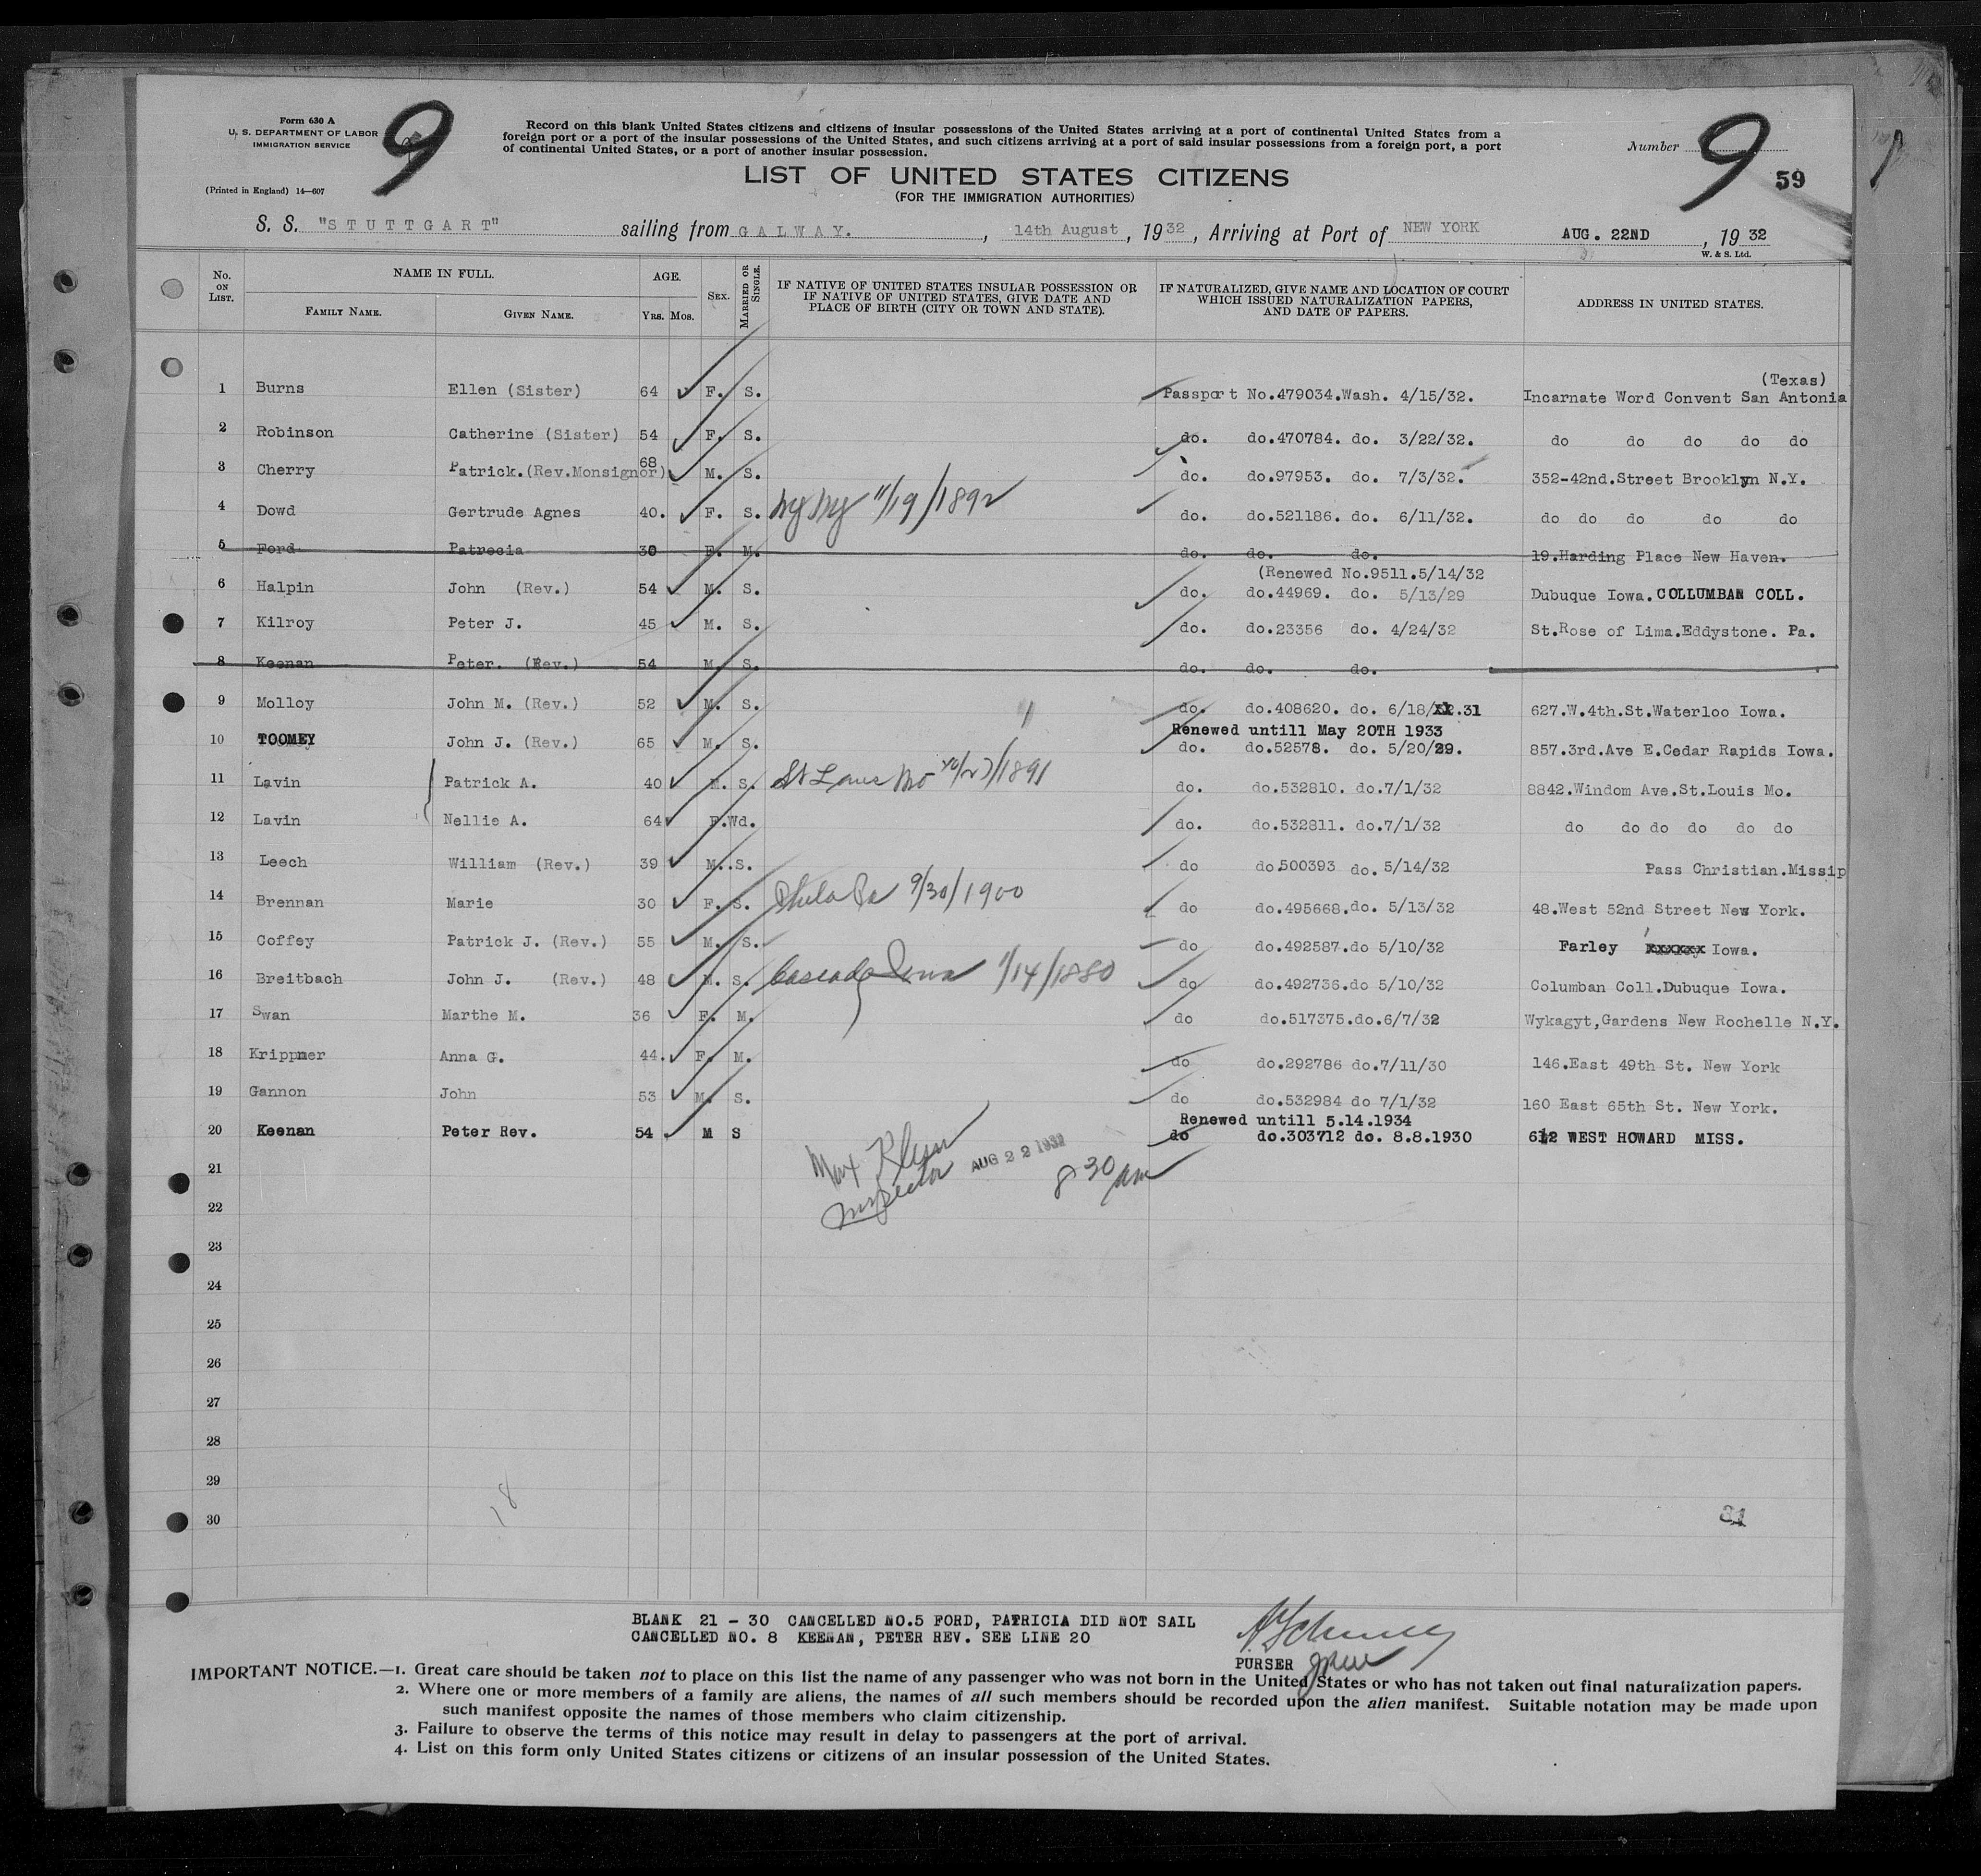 Form 630 A
U. S. DEPARTMENT OF LABOR
IMMIGRATION SERVICE
(Printed in England) 14—607
9
Record on this blank United States citizens and citizens of insular possessions of the United States arriving at a port of continental United States from a
foreign port or a port of the insular possessions of the United States, and such citizens arriving at a port of said insular possessions from a foreign port, a port
of continental United States, or a port of another insular possession.
Number 9
59
LIST OF UNITED STATES CITIZENS
(FOR THE IMMIGRATION AUTHORITIES)
S. S. "STUTTGART" sailing from GALWAY. , 14th August , 1932 , Arriving at Port of NEW YORK AUG. 22ND , 1932
W. & S. Ltd.
No. ON LIST. NAME IN FULL. AGE. SEX. MARRIED OR SINGLE. IF NATIVE OF UNITED STATES INSULAR POSSESSION OR IF NATIVE OF UNITED STATES, GIVE DATE AND PLACE OF BIRTH (CITY OR TOWN AND STATE). IF NATURALIZED, GIVE NAME AND LOCATION OF COURT WHICH ISSUED NATURALIZATION PAPERS, AND DATE OF PAPERS. ADDRESS IN UNITED STATES.
FAMILY NAME. GIVEN NAME. YRS. MOS.
(Texas)
1 Burns Ellen (Sister) 64 F. S. Passport No.479034.Wash. 4/15/32. Incarnate Word Convent San Antonia
2 Robinson Catherine (Sister) 54 F. S. do. do.470784. do. 3/22/32. do do do do do
3 Cherry Patrick.(Rev.Monsignor) 68 M. S. do. do.97953. do. 7/3/32. 352-42nd.Street Brooklyn N.Y.
4 Dowd Gertrude Agnes 40. F. S. Ny Ny 11/19/1892 do. do.521186. do. 6/11/32. do do do do do
5 Ford Patrecia 30 F. M. do. do. do. 19.Harding Place New Haven.
(Renewed No.9511.5/14/32
6 Halpin John (Rev.) 54 M. S. do. do.44969. do. 5/13/29 Dubuque Iowa. COLLUMBAN COLL.
7 Kilroy Peter J. 45 M. S. do. do.23356 do. 4/24/32 St.Rose of Lima.Eddystone. Pa.
8 Keenan Peter. (Rev.) 54 M. S. do. do. do.
9 Molloy John M. (Rev.) 52 M. S. do. do.408620. do. 6/18/xx.31 627.W.4th.St.Waterloo Iowa.
Renewed untill May 20TH 1933
10 TOOMEY John J. (Rev.) 65 M. S. do. do.52578. do. 5/20/29. 857.3rd.Ave E.Cedar Rapids Iowa.
11 Lavin Patrick A. 40 M. S. St Louis Mo 10/27/1891 do. do.532810. do.7/1/32 8842.Windom Ave.St.Louis Mo.
12 Lavin Nellie A. 64 F.Wd. do. do.532811. do.7/1/32 do do do do do do
13 Leech William (Rev.) 39 M..S. do do.500393 do. 5/14/32 Pass Christian.Missip
14 Brennan Marie 30 F. S. Phila Pa 9/30/1900 do do.495668.do. 5/13/32 48.West 52nd Street New York.
15 Coffey Patrick J. (Rev.) 55 M. S. do do.492587.do 5/10/32 Farley xxxxxx Iowa.
16 Breitbach John J. (Rev.) 48 M. S. Cascade Iowa 1/14/1880 do do.492736.do 5/10/32 Columban Coll.Dubuque Iowa.
17 Swan Marthe M. 36 F. M. do do.517375.do.6/7/32 Wykagyt,Gardens New Rochelle N.Y.
18 Krippner Anna G. 44. F. M. do do.292786 do.7/11/30 146.East 49th St. New York
19 Gannon John 53 M. S. do do.532984 do 7/1/32 160 East 65th St. New York.
Renewed untill 5.14.1934
20 Keenan Peter Rev. 54 M S do do.303712 do. 8.8.1930 612 WEST HOWARD MISS.
21
Inspector AUG 22 1932 8 30 am
22
23
24
25
26
27
28
29
18
30
BLANK 21 - 30 CANCELLED NO.5 FORD, PATRICIA DID NOT SAIL
CANCELLED NO. 8 KEENAN, PETER REV. SEE LINE 20
PURSER
IMPORTANT NOTICE.—1. Great care should be taken not to place on this list the name of any passenger who was not born in the United States or who has not taken out final naturalization papers.
2. Where one or more members of a family are aliens, the names of all such members should be recorded upon the alien manifest. Suitable notation may be made upon
such manifest opposite the names of those members who claim citizenship.
3. Failure to observe the terms of this notice may result in delay to passengers at the port of arrival.
4. List on this form only United States citizens or citizens of an insular possession of the United States.